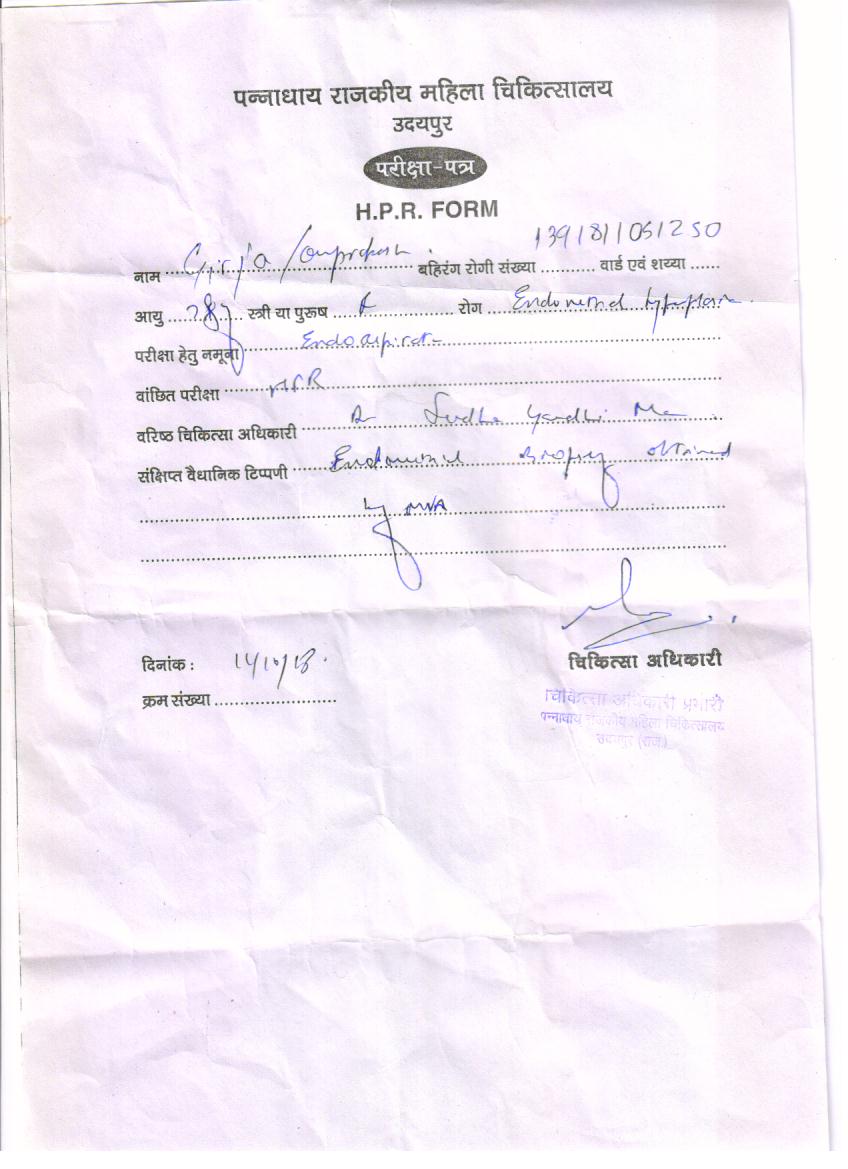 पन्नाधाय राजकीय महिला चिकित्सालय
उदयपुर
परीक्षा-पत्र
H.P.R. FORM
1391811051250
नाम Girja / Omprakash बहिरंग रोगी संख्या .......... वार्ड एवं शय्या ......
आयु 28y स्त्री या पुरूष F रोग Endometrial
परीक्षा हेतु नमूना Endoaspirate
वांछित परीक्षा HPR
वरिष्ठ चिकित्सा अधिकारी Dr Sudha Gandhi Ma
संक्षिप्त वैधानिक टिप्पणी Endometrial Biopsy obtained
by MVA
दिनांक :
चिकित्सा अधिकारी
क्रम संख्या ........................
चिकित्सा अधिकारी प्रभारी
पन्नाधाय राजकीय महिला चिकित्सालय
उदयपुर (राज.)